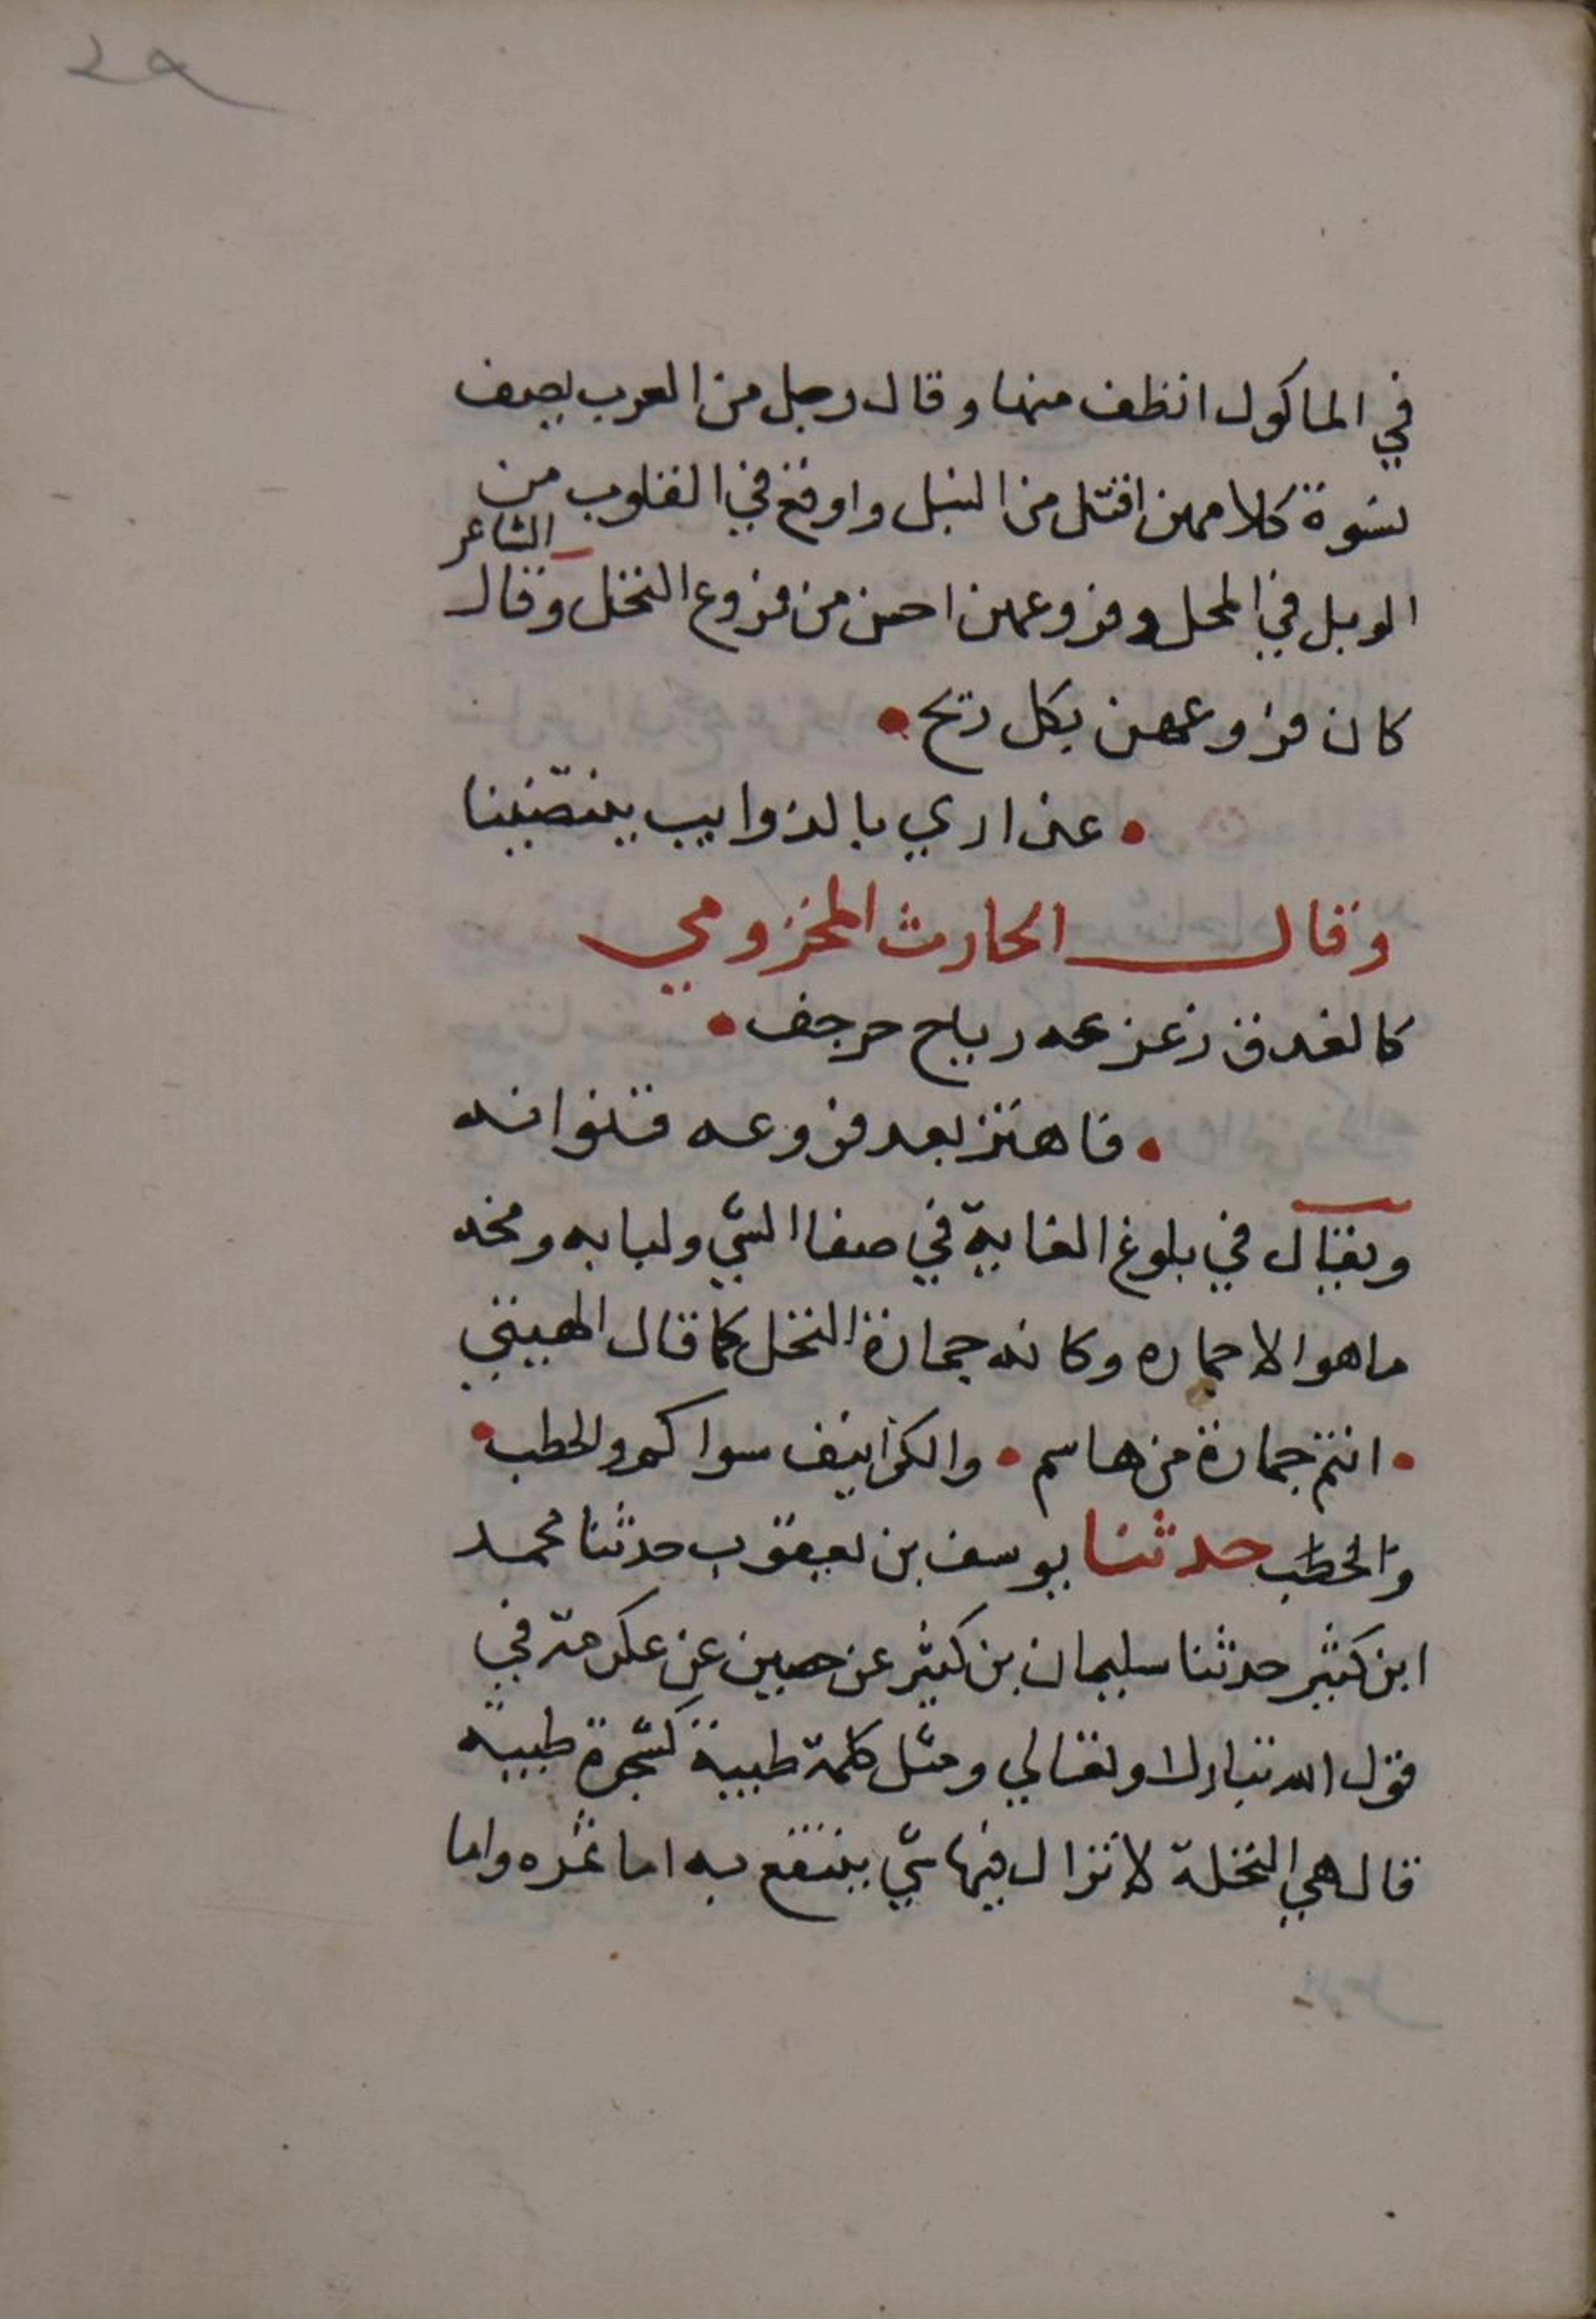 ٢٩
في الماكول انظف منها وقال رجل من العرب يصف
نسوة كلامهن اقتل من النبل واوقع في القلوب من
الوبل في المحل وفروعهن احسن من فروع النخل وقال الشاعر
كان فروعهن بكل ريح •
• عذاري بالذوايب ينتصينا
وقال الحارث المخزومي
كالغدق زعزعه رياح حرجف •
• فاهتز بعد فروعه قنوانه
ويقال في بلوغ الغاية في صفا الشي ولبابه ومخه
ماهو الا جماره وكانه جمارة النخل كما قال
• انتم جمارة من هاسم • والكرانيف سواكم والحطب •
والخطب حدثنا يوسف بن يعقوب حدثنا محمد
ابن كثير حدثنا سليمان بن كثير عن حصين عن عكرمة في
قول الله تبارك وتعالي ومثل كلمة طيبة كشجرة طيبة
قال هي النخلة لا تزال فيها شي ينتفع به اما ثمره واما